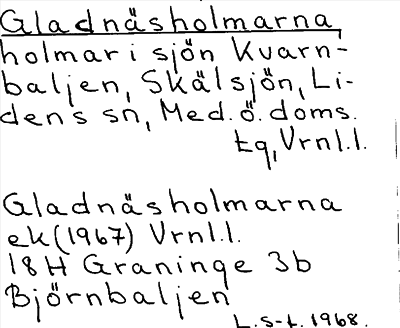 Gladnäsholmarna,
holmar i sjön Kvarn-
baljen, Skälsjön, Li-
dens sn, Med.ö.doms.
tq, Vrnl.l.
Gladnäsholmarna
ek (1967) Vrnl.l.
18H Graninge 3b
Björnbaljen
L.s-t. 1968.